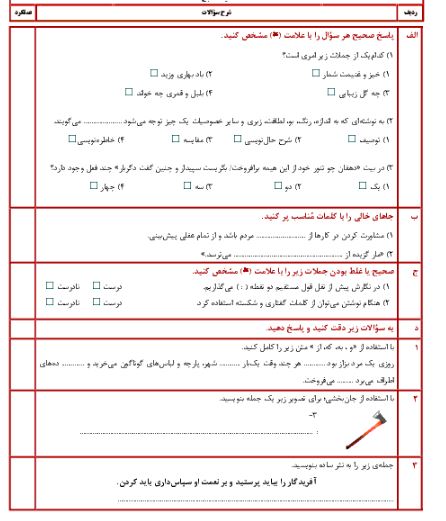 ردیف شرح سؤالات عملکرد
الف پاسخ صحیح هر سؤال را با علامت (☒) مشخص کنید.
۱) کدام‌یک از جملات زیر امری است؟
۱) خیز و غنیمت شمار ☐ ۲) باد بهاری وزید ☐
۳) چه گل زیبایی ☐ ۴) بلبل و قمری چه خواند ☐
۲) به نوشته‌ای که به اندازه، رنگ، بو، لطافت، زبری و سایر خصوصیات یک چیز توجه می‌شود .................... می‌گویند.
۱) توصیف ☐ ۲) شرح حال‌نویسی ☐ ۳) مقایسه ☐ ۴) خاطره‌نویسی ☐
۳) در بیت «دهقان چو تنور خود از این هیمه برافروخت/ بگریست سپیدار و چنین گفت دگربار» چند فعل وجود دارد؟
۱) یک ☐ ۲) دو ☐ ۳) سه ☐ ۴) چهار ☐
ب جاهای خالی را با کلمات مُناسب پر کنید.
۱) مشاورت کردن در کارها از ........................ مردم باشد و از تمام عقلی پیش‌بینی.
۲) «مار گزیده از ................................................ می‌ترسد.»
ج صحیح یا غلط بودن جملات زیر را با علامت (☒) مشخص کنید.
۱) در نگارش پیش از نقل قول مستقیم دو نقطه ( : ) می‌گذاریم. درست ☐ نادرست ☐
۲) هنگام نوشتن می‌توان از کلمات گفتاری و شکسته استفاده کرد. درست ☐ نادرست ☐
د به سؤالات زیر دقت کنید و پاسخ دهید.
۱ با استفاده از «و ، به، که، از » متن زیر را کامل کنید.
روزی یک مرد بزاز بود .......... هر چند وقت یک‌بار .......... شهر، پارچه و لباس‌های گوناگون می‌خرید و .......... ده‌های
اطراف می‌برد ........ می‌فروخت.
۲ با استفاده از جان‌بخشی؛ برای تصویر زیر یک جمله بنویسید.
۳-
: ................................................................................
۳ جمله‌ی زیر را به نثر ساده بنویسید.
آفریدگار را بباید پرستید و بر نعمت او سپاس‌داری باید کردن.
................................................................................